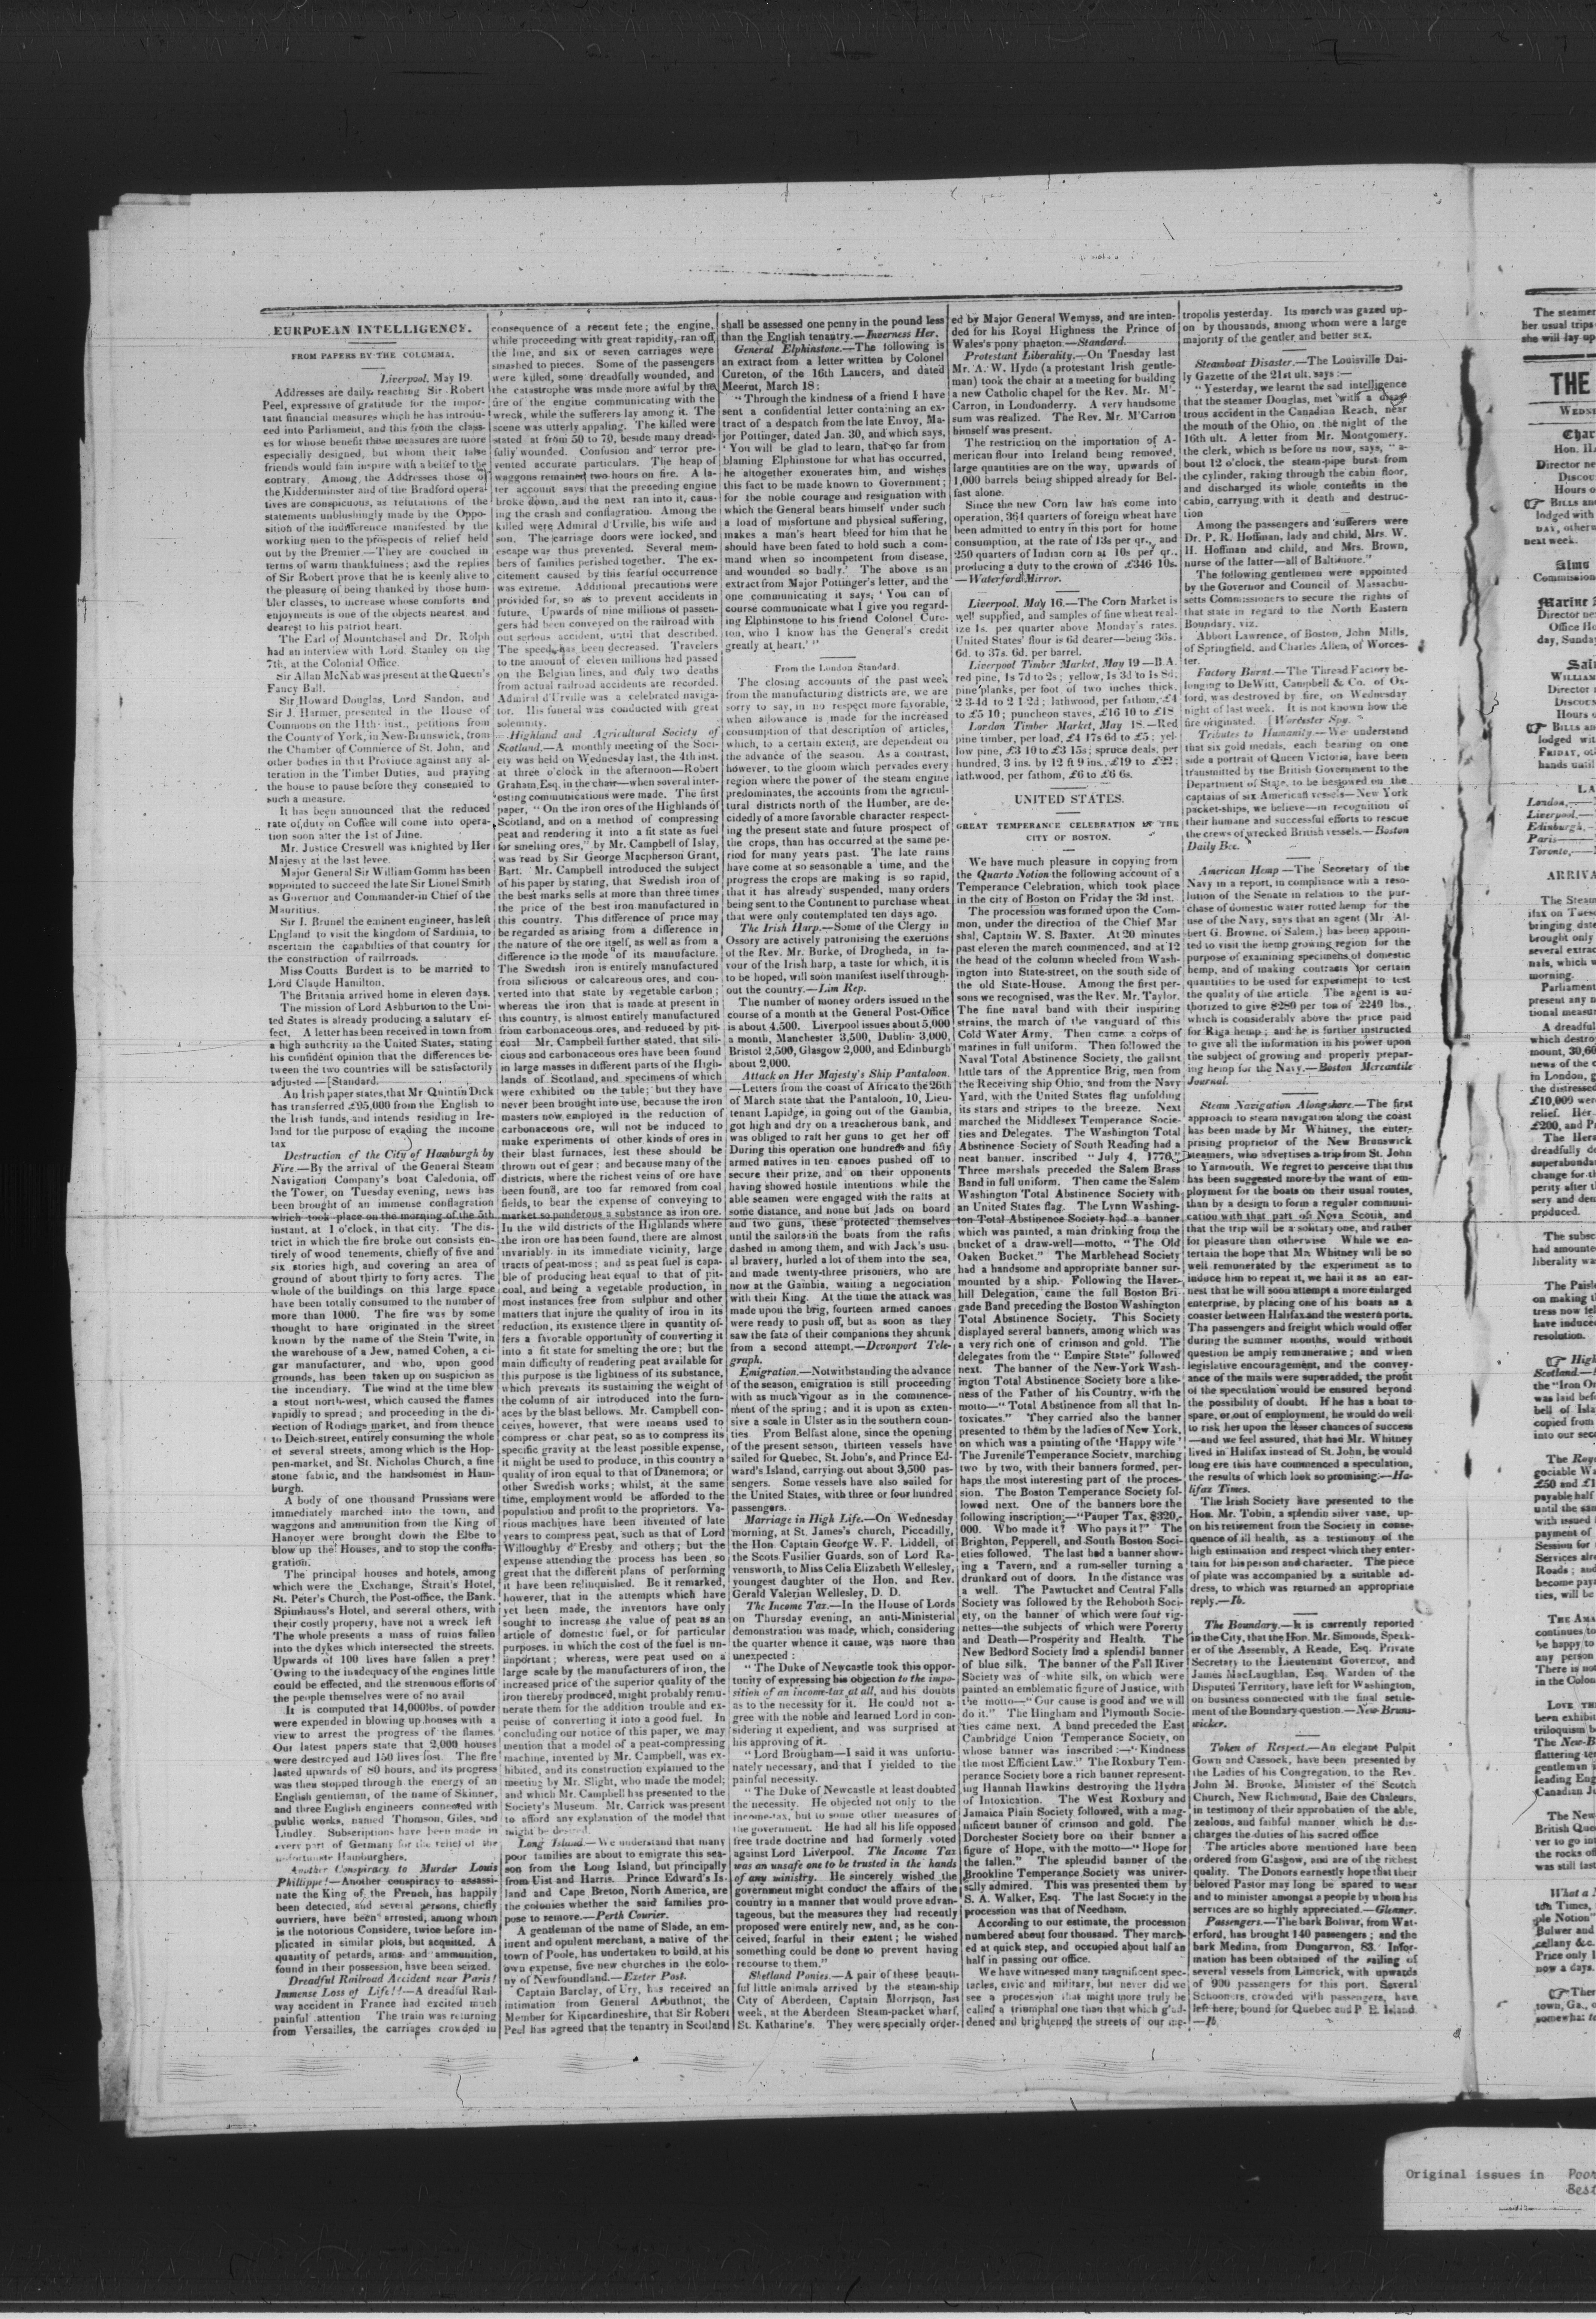 EURPOEAN INTELLIGENCE.
FROM PAPERS BY THE COLUMBIA.
Liverpool, May 19.
Addresses are daily reaching Sir Robert
Peel, expressive of gratitude for the impor-
tant financial measures which he has introdu-
ced into Parliament, and this from the class-
es for whose benefit those measures are more
especially designed, but whom their false
friends would fain inspire with a belief to the
contrary. Among the Addresses those of
the Kidderminster and of the Bradford opera-
tives are conspicuous, as refutations of the
statements unblushingly made by the Oppo-
sition of the indifference manifested by the
working men to the prospects of relief held
out by the Premier.—They are couched in
terms of warm thankfulness; and the replies
of Sir Robert prove that he is keenly alive to
the pleasure of being thanked by those hum-
bler classes, to increase whose comforts and
enjoyments is one of the objects nearest and
dearest to his patriot heart.
The Earl of Mountchasel and Dr. Rolph
had an interview with Lord Stanley on the
7th, at the Colonial Office.
Sir Allan McNab was present at the Queen's
Fancy Ball.
Sir Howard Douglas, Lord Sandon, and
Sir J. Harmer, presented in the House of
Commons on the 11th inst., petitions from
the County of York, in New-Brunswick, from
the Chamber of Commerce of St. John, and
other bodies in that Province against any al-
teration in the Timber Duties, and praying
the house to pause before they consented to
such a measure.
It has been announced that the reduced
rate of duty on Coffee will come into opera-
tion soon after the 1st of June.
Mr. Justice Creswell was knighted by Her
Majesty at the last levee.
Major General Sir William Gomm has been
appointed to succeed the late Sir Lionel Smith
as Governor and Commander-in Chief of the
Mauritius.
Sir I. Brunel the eminent engineer, has left
England to visit the kingdom of Sardinia, to
ascertain the capabilties of that country for
the construction of railroads.
Miss Coutts Burdett is to be married to
Lord Claude Hamilton.
The Britania arrived home in eleven days.
The mission of Lord Ashburton to the Uni-
ted States is already producing a salutary ef-
fect. A letter has been received in town from
a high authority in the United States, stating
his confident opinion that the differences be-
tween the two countries will be satisfactorily
adjusted—[Standard.
An Irish paper states, that Mr Quintin Dick
has transferred £95,000 from the English to
the Irish funds, and intends residing in Ire-
land for the purpose of evading the income
tax
Destruction of the City of Hamburgh by
Fire.—By the arrival of the General Steam
Navigation Company's boat Caledonia, off
the Tower, on Tuesday evening, news has
been brought of an immense conflagration
which took place on the morning of the 5th
instant, at 1 o'clock, in that city. The dis-
trict in which the fire broke out consists en-
tirely of wood tenements, chiefly of five and
six stories high, and covering an area of
ground of about thirty to forty acres. The
whole of the buildings on this large space
have been totally consumed to the number of
more than 1000. The fire was by some
thought to have originated in the street
known by the name of the Stein Twite, in
the warehouse of a Jew, named Cohen, a ci-
gar manufacturer, and who, upon good
grounds, has been taken up on suspicion as
the incendiary. The wind at the time blew
a stout north-west, which caused the flames
rapidly to spread; and proceeding in the di-
rection of Rodings market, and from thence
to Deich-street, entirely consuming the whole
of several streets, among which is the Hop-
pen-market, and St. Nicholas Church, a fine
stone fabric, and the handsomest in Ham-
burgh.
A body of one thousand Prussians were
immediately marched into the town, and
waggons and ammunition from the King of
Hanover were brought down the Elbe to
blow up the Houses, and to stop the confla-
gration.
The principal houses and hotels, among
which were the Exchange, Strait's Hotel,
St. Peter's Church, the Post-office, the Bank,
Spimhauss's Hotel, and several others, with
their costly property, have not a wreck left
The whole presents a mass of ruins fallen
into the dykes which intersected the streets.
Upwards of 100 lives have fallen a prey!
Owing to the inadequacy of the engines little
could be effected, and the strenuous efforts of
the people themselves were of no avail
It is computed that 14,000lbs. of powder
were expended in blowing up houses with a
view to arrest the progress of the flames
Our latest papers state that 2,000 houses
were destroyed and 150 lives lost. The fire
lasted upwards of 80 hours, and its progress
was then stopped through the energy of an
English gentleman, of the name of Skinner,
and three English engineers connected with
public works, named Thomson, Giles, and
Lindley. Subscriptions have been made in
every part of Germany for the relief of the
unfortunate Hamburghers.
Another Conspiracy to Murder Louis
Phillippe!—Another conspiracy to assassi-
nate the King of the French, has happily
been detected, and several persons, chiefly
ouvriers, have been arrested, among whom
is the notorious Considere, twice before im-
plicated in similar plots, but acquitted. A
quantity of petards, arms and ammunition,
found in their possession, have been seized.
Dreadful Railroad Accident near Paris!
Immense Loss of Life!!—A dreadful Rail-
way accident in France had excited much
painful attention The train was returning
from Versailles, the carriages crowded in
consequence of a recent fete; the engine,
while proceeding with great rapidity, ran off
the line, and six or seven carriages were
smashed to pieces. Some of the passengers
were killed, some dreadfully wounded, and
the catastrophe was made more awful by the
fire of the engine communicating with the
wreck, while the sufferers lay among it. The
scene was utterly appaling. The killed were
stated at from 50 to 70, beside many dread-
fully wounded. Confusion and terror pre-
vented accurate particulars. The heap of
waggons remained two hours on fire. A la-
ter account says that the preceding engine
broke down, and the next ran into it, caus-
ing the crash and conflagration. Among the
killed were Admiral d'Urville, his wife and
son. The carriage doors were locked, and
escape was thus prevented. Several mem-
bers of families perished together. The ex-
citement caused by this fearful occurrence
was extreme. Additional precautions were
provided for, so as to prevent accidents in
future. Upwards of nine millions of passen-
gers had been conveyed on the railroad with
out serious accident, until that described.
The speed has been decreased. Travelers
to the amount of eleven millions had passed
on the Belgian lines, and only two deaths
from actual railroad accidents are recorded.
Admiral d'Urville was a celebrated naviga-
tor. His funeral was conducted with great
solemnity.
Highland and Agricultural Society of
Scotland.—A monthly meeting of the Soci-
ety was held on Wednesday last, the 4th inst.
at three o'clock in the afternoon—Robert
Graham, Esq. in the chair—when several inter-
esting communications were made. The first
paper, "On the iron ores of the Highlands of
Scotland, and on a method of compressing
peat and rendering it into a fit state as fuel
for smelting ores," by Mr. Campbell of Islay,
was read by Sir George Macpherson Grant,
Bart. Mr. Campbell introduced the subject
of his paper by stating, that Swedish iron of
the best marks sells at more than three times
the price of the best iron manufactured in
this country. This difference of price may
be regarded as arising from a difference in
the nature of the ore itself, as well as from a
difference in the mode of its manufacture.
The Swedish iron is entirely manufactured
from silicious or calcareous ores, and con-
verted into that state by vegetable carbon;
whereas the iron that is made at present in
this country, is almost entirely manufactured
from carbonaceous ores, and reduced by pit-
coal Mr. Campbell further stated, that sili-
cious and carbonaceous ores have been found
in large masses in different parts of the High-
lands of Scotland, and specimens of which
were exhibited on the table; but they have
never been brought into use, because the iron
masters now employed in the reduction of
carbonaceous ore, will not be induced to
make experiments of other kinds of ores in
their blast furnaces, lest these should be
thrown out of gear; and because many of the
districts, where the richest veins of ore have
been found, are too far removed from coal
fields, to bear the expense of conveying to
market so ponderous a substance as iron ore.
In the wild districts of the Highlands where
the iron ore has been found, there are almost
invariably, in its immediate vicinity, large
tracts of peat-moss; and as peat fuel is capa-
ble of producing heat equal to that of pit-
coal, and being a vegetable production, in
most instances free from sulphur and other
matters that injure the quality of iron in its
reduction, its existence there in quantity of-
fers a favorable opportunity of converting it
into a fit state for smelting the ore; but the
main difficulty of rendering peat available for
this purpose is the lightness of its substance,
which prevents its sustaining the weight of
the column of air introduced into the furn-
aces by the blast bellows. Mr. Campbell con-
ceives, however, that were means used to
compress or char peat, so as to compress its
specific gravity at the least possible expense,
it might be used to produce, in this country a
quality of iron equal to that of Danemora; or
other Swedish works; whilst, at the same
time, employment would be afforded to the
population and profit to the proprietors. Va-
rious machines have been invented of late
years to compress peat, such as that of Lord
Willoughby d'Eresby and others; but the
expense attending the process has been so
great that the different plans of performing
it have been relinquished. Be it remarked,
however, that in the attempts which have
yet been made, the inventors have only
sought to increase the value of peat as an
article of domestic fuel, or for particular
purposes, in which the cost of the fuel is un-
important; whereas, were peat used on a
large scale by the manufacturers of iron, the
increased price of the superior quality of the
iron thereby produced, might probably remu-
nerate them for the addition trouble and ex-
pense of converting it into a good fuel. In
concluding our notice of this paper, we may
mention that a model of a peat-compressing
machine, invented by Mr. Campbell, was ex-
hibited, and its construction explained to the
meeting by Mr. Slight, who made the model;
and which Mr. Campbell has presented to the
Society's Museum. Mr. Carrick was present
to afford any explanation of the model that
might be desired.
Long Island.—We understand that many
poor families are about to emigrate this sea-
son from the Long Island, but principally
from Uist and Harris. Prince Edward's Is-
land and Cape Breton, North America, are
the colonies whether the said families pro-
pose to remove.—Perth Courier.
A gentleman of the name of Slade, an em-
inent and opulent merchant, a native of the
town of Poole, has undertaken to build, at his
own expense, five new churches in the colo-
ny of Newfoundland.—Exeter Post.
Captain Barclay, of Ury, has received an
intimation from General Arbuthnot, the
Member for Kincardineshire, that Sir Robert
Peel has agreed that the tenantry in Scotland
shall be assessed one penny in the pound less
than the English tenantry.—Inverness Her.
General Elphinstone.—The following is
an extract from a letter written by Colonel
Cureton, of the 16th Lancers, and dated
Meerut, March 18:
"Through the kindness of a friend I have
sent a confidential letter containing an ex-
tract of a despatch from the late Envoy, Ma-
jor Pottinger, dated Jan. 30, and which says,
'You will be glad to learn, that so far from
blaming Elphinstone for what has occurred,
he altogether exonerates him, and wishes
this fact to be made known to Government;
for the noble courage and resignation with
which the General bears himself under such
a load of misfortune and physical suffering,
makes a man's heart bleed for him that he
should have been fated to hold such a com-
mand when so incompetent from disease,
and wounded so badly.' The above is an
extract from Major Pottinger's letter, and the
one communicating it says, 'You can of
course communicate what I give you regard-
ing Elphinstone to his friend Colonel Cure-
ton, who I know has the General's credit
greatly at heart.'"
From the London Standard.
The closing accounts of the past week
from the manufacturing districts are, we are
sorry to say, in no respect more favorable,
when allowance is made for the increased
consumption of that description of articles,
which, to a certain extent, are dependent on
the advance of the season. As a contrast,
however, to the gloom which pervades every
region where the power of the steam engine
predominates, the accounts from the agricul-
tural districts north of the Humber, are de-
cidedly of a more favorable character respect-
ing the present state and future prospect of
the crops, than has occurred at the same pe-
riod for many years past. The late rains
have come at so seasonable a time, and the
progress the crops are making is so rapid,
that it has already suspended, many orders
being sent to the Continent to purchase wheat
that were only contemplated ten days ago.
The Irish Harp.—Some of the Clergy in
Ossory are actively patronising the exertions
of the Rev. Mr. Burke, of Drogheda, in fa-
vour of the Irish harp, a taste for which, it is
to be hoped, will soon manifest itself through-
out the country.—Lim Rep.
The number of money orders issued in the
course of a month at the General Post-Office
is about 4,500. Liverpool issues about 5,000
a month, Manchester 3,500, Dublin 3,000,
Bristol 2,500, Glasgow 2,000, and Edinburgh
about 2,000.
Attack on Her Majesty's Ship Pantaloon.
—Letters from the coast of Africa to the 26th
of March state that the Pantaloon, 10, Lieu-
tenant Lapidge, in going out of the Gambia,
got high and dry on a treacherous bank, and
was obliged to raft her guns to get her off
During this operation one hundred and fifty
armed natives in ten canoes pushed off to
secure their prize, and on their opponents
having showed hostile intentions while the
able seamen were engaged with the rafts at
some distance, and none but lads on board
and two guns, these protected themselves
until the sailors in the boats from the rafts
dashed in among them, and with Jack's usu-
al bravery, hurled a lot of them into the sea,
and made twenty-three prisoners, who are
now at the Gambia, waiting a negociation
with their King. At the time the attack was
made upon the brig, fourteen armed canoes
were ready to push off, but as soon as they
saw the fate of their companions they shrunk
from a second attempt.—Devonport Tele-
graph.
Emigration.—Notwithstanding the advance
of the season, emigration is still proceeding
with as much vigour as in the commence-
ment of the spring; and it is upon as exten-
sive a scale in Ulster as in the southern coun-
ties From Belfast alone, since the opening
of the present season, thirteen vessels have
sailed for Quebec, St. John's, and Prince Ed-
ward's Island, carrying out about 3,500 pas-
sengers. Some vessels have also sailed for
the United States, with three or four hundred
passengers.
Marriage in High Life.—On Wednesday
morning, at St. James's church, Piccadilly,
the Hon. Captain George W. F. Liddell, of
the Scots Fusilier Guards, son of Lord Ra-
vensworth, to Miss Celia Elizabeth Wellesley,
youngest daughter of the Hon. and Rev.
Gerald Valerian Wellesley, D. D.
The Income Tax.—In the House of Lords
on Thursday evening, an anti-Ministerial
demonstration was made, which, considering
the quarter whence it came, was more than
unexpected:
"The Duke of Newcastle took this oppor-
tunity of expressing his objection to the impo-
sition of an income-tax at all, and his doubts
as to the necessity for it. He could not a-
gree with the noble and learned Lord in con-
sidering it expedient, and was surprised at
his approving of it.
"Lord Brougham—I said it was unfortu-
nately necessary, and that I yielded to the
painful necessity.
"The Duke of Newcastle at least doubted
the necessity. He objected not only to the
income-tax, but to some other measures of
the government. He had all his life opposed
free trade doctrine and had formerly voted
against Lord Liverpool. The Income Tax
was an unsafe one to be trusted in the hands
of any ministry. He sincerely wished the
government might conduct the affairs of the
country in a manner that would prove advan-
tageous, but the measures they had recently
proposed were entirely new, and, as he con-
ceived, fearful in their extent; he wished
something could be done to prevent having
recourse to them."
Shetland Ponies.—A pair of these beauti-
ful little animals arrived by the steam-ship
City of Aberdeen, Captain Morrison, last
week, at the Aberdeen Steam-packet wharf,
St. Katharine's. They were specially order-
ed by Major General Wemyss, and are inten-
ded for his Royal Highness the Prince of
Wales's pony phaeton.—Standard.
Protestant Liberality.—On Tuesday last
Mr. A. W. Hyde (a protestant Irish gentle-
man) took the chair at a meeting for building
a new Catholic chapel for the Rev. Mr. M'-
Carron, in Londonderry. A very handsome
sum was realized. The Rev. Mr. M'Carron
himself was present.
The restriction on the importation of A-
merican flour into Ireland being removed,
large quantities are on the way, upwards of
1,000 barrels being shipped already for Bel-
fast alone.
Since the new Corn law has come into
operation, 364 quarters of foreign wheat have
been admitted to entry in this port for home
consumption, at the rate of 13s per qr., and
250 quarters of Indian corn at 10s per qr.,
producing a duty to the crown of £346 10s.
—Waterford Mirror.
Liverpool, May 16.—The Corn Market is
well supplied, and samples of fine wheat real-
ize 1s. per quarter above Monday's rates.
United States' flour is 6d dearer—being 36s.
6d. to 37s. 6d. per barrel.
Liverpool Timber Market, May 19—B.A.
red pine, 1s 7d to 2s; yellow, 1s 3d to 1s 8d;
pine planks, per foot of two inches thick,
2 3-4d to 2 1-2d; lathwood, per fathom, £4
to £5 10; puncheon staves, £16 10 to £18
London Timber Market, May 18.—Red
pine timber, per load, £4 17s 6d to £5; yel-
low pine, £3 10 to £3 15s; spruce deals, per
hundred, 3 ins. by 12 ft 9 ins., £19 to £22;
lathwood, per fathom, £6 to £6 6s.
UNITED STATES.
GREAT TEMPERANCE CELEBRATION IN THE
CITY OF BOSTON.
We have much pleasure in copying from
the Quarto Notion the following account of a
Temperance Celebration, which took place
in the city of Boston on Friday the 3d inst.
The procession was formed upon the Com-
mon, under the direction of the Chief Mar
shal, Captain W. S. Baxter. At 20 minutes
past eleven the march commenced, and at 12
the head of the column wheeled from Wash-
ington into State-street, on the south side of
the old State-House. Among the first per-
sons we recognised, was the Rev. Mr. Taylor.
The fine naval band with their inspiring
strains, the march of the vanguard of this
Cold Water Army. Then came a corps of
marines in full uniform. Then followed the
Naval Total Abstinence Society, the gallant
little tars of the Apprentice Brig, men from
the Receiving ship Ohio, and from the Navy
Yard, with the United States flag unfolding
its stars and stripes to the breeze. Next
marched the Middlesex Temperance Socie-
ties and Delegates. The Washington Total
Abstinence Society of South Reading had a
neat banner, inscribed "July 4, 1776."
Three marshals preceded the Salem Brass
Band in full uniform. Then came the Salem
Washington Total Abstinence Society with
an United States flag. The Lynn Washing-
ton Total Abstinence Society had a banner
which was painted, a man drinking from the
bucket of a draw-well—motto, "The Old
Oaken Bucket." The Marblehead Society
had a handsome and appropriate banner sur-
mounted by a ship. Following the Haver-
hill Delegation, came the full Boston Bri-
gade Band preceding the Boston Washington
Total Abstinence Society. This Society
displayed several banners, among which was
a very rich one of crimson and gold. The
delegates from the "Empire State" followed
next. The banner of the New-York Wash-
ington Total Abstinence Society bore a like-
ness of the Father of his Country, with the
motto—"Total Abstinence from all that In-
toxicates." They carried also the banner
presented to them by the ladies of New York,
on which was a painting of the 'Happy wife.'
The Juvenile Temperance Society, marching
two by two, with their banners formed, per-
haps the most interesting part of the proces-
sion. The Boston Temperance Society fol-
lowed next. One of the banners bore the
following inscription;—"Pauper Tax, $320,-
000. Who made it? Who pays it?" The
Brighton, Pepperell, and South Boston Soci-
eties followed. The last had a banner show-
ing a Tavern, and a rum-seller turning a
drunkard out of doors. In the distance was
a well. The Pawtucket and Central Falls
Society was followed by the Rehoboth Soci-
ety, on the banner of which were four vig-
nettes—the subjects of which were Poverty
and Death—Prosperity and Health. The
New Bedford Society had a splendid banner
of blue silk. The banner of the Fall River
Society was of white silk, on which were
painted an emblematic figure of Justice, with
the motto—"Our cause is good and we will
do it." The Hingham and Plymouth Socie-
ties came next. A band preceded the East
Cambridge Union Temperance Society, on
whose banner was inscribed:—"Kindness
the most Efficient Law." The Roxbury Tem-
perance Society bore a rich banner represent-
ing Hannah Hawkins destroying the Hydra
of Intoxication. The West Roxbury and
Jamaica Plain Society followed, with a mag-
nificent banner of crimson and gold. The
Dorchester Society bore on their banner a
figure of Hope, with the motto—"Hope for
the fallen." The splendid banner of the
Brookline Temperance Society was univer-
sally admired. This was presented them by
S. A. Walker, Esq. The last Society in the
procession was that of Needham.
According to our estimate, the procession
numbered about four thousand. They march-
ed at quick step, and occupied about half an
half in passing our office.
We have witnessed many magnificent spec-
tacles, civic and military, but never did we
see a procession that might more truly be
called a triumphal one than that which glad-
dened and brightened the streets of our me-
tropolis yesterday. Its march was gazed up-
on by thousands, among whom were a large
majority of the gentler and better sex.
Steamboat Disaster.—The Louisville Dai-
ly Gazette of the 21st ult. says:—
"Yesterday, we learnt the sad intelligence
that the steamer Douglas, met with a disas-
trous accident in the Canadian Reach, near
the mouth of the Ohio, on the night of the
16th ult. A letter from Mr. Montgomery,
the clerk, which is before us now, says, "a-
bout 12 o'clock, the steam-pipe burst from
the cylinder, raking through the cabin floor,
and discharged its whole contents in the
cabin, carrying with it death and destruc-
tion
Among the passengers and sufferers were
Dr. P. R. Hoffman, lady and child, Mrs. W.
H. Hoffman and child, and Mrs. Brown,
nurse of the latter—all of Baltimore."
The following gentlemen were appointed
by the Governor and Council of Massachu-
setts Commissioners to secure the rights of
that state in regard to the North Eastern
Boundary, viz.
Abbott Lawrence, of Boston, John Mills,
of Springfield, and Charles Allen, of Worces-
ter.
Factory Burnt.—The Thread Factory be-
longing to DeWitt, Campbell & Co. of Ox-
ford, was destroyed by fire, on Wednesday
night of last week. It is not known how the
fire originated. [Worcester Spy.
Tributes to Humanity.—We understand
that six gold medals, each bearing on one
side a portrait of Queen Victoria, have been
transmitted by the British Government to the
Department of State, to be bestowed on the
captains of six American vessels—New York
packet-ships, we believe—in recognition of
their humane and successful efforts to rescue
the crews of wrecked British vessels.—Boston
Daily Bee.
American Hemp—The Secretary of the
Navy in a report, in compliance with a reso-
lution of the Senate in relation to the pur-
chase of domestic water rotted hemp for the
use of the Navy, says that an agent (Mr Al-
bert G. Browne, of Salem,) has been appoin-
ted to visit the hemp growing region for the
purpose of examining specimens of domestic
hemp, and of making contracts for certain
quantities to be used for experiment to test
the quality of the article The agent is au-
thorized to give $280 per ton of 2240 lbs.,
which is considerably above the price paid
for Riga hemp; and he is further instructed
to give all the information in his power upon
the subject of growing and properly prepar-
ing hemp for the Navy.—Boston Mercantile
Journal.
Steam Navigation Alongshore.—The first
approach to steam navigation along the coast
has been made by Mr Whitney, the enter-
prising proprietor of the New Brunswick
steamers, who advertises a trip from St. John
to Yarmouth. We regret to perceive that this
has been suggested more by the want of em-
ployment for the boats on their usual routes,
than by a design to form a regular communi-
cation with that part of Nova Scotia, and
that the trip will be a solitary one, and rather
for pleasure than otherwise While we en-
tertain the hope that Mr. Whitney will be so
well remunerated by the experiment as to
induce him to repeat it, we hail it as an ear-
nest that he will soon attempt a more enlarged
enterprise, by placing one of his boats as a
coaster between Halifax and the western ports.
Tha passengers and freight which would offer
during the summer months, would without
question be amply remunerative; and when
legislative encouragement, and the convey-
ance of the mails were superadded, the profit
of the speculation would be ensured beyond
the possibility of doubt. If he has a boat to
spare, or out of employment, he would do well
to risk her upon the lesser chances of success
—and we feel assured, that had Mr. Whitney
lived in Halifax instead of St. John, he would
long ere this have commenced a speculation,
the results of which look so promising.—Ha-
lifax Times.
The Irish Society have presented to the
Hon. Mr. Tobin, a splendin silver vase, up-
on his retirement from the Society in conse-
quence of ill health, as a testimony of the
high estimation and respect which they enter-
tain for his person and character. The piece
of plate was accompanied by a suitable ad-
dress, to which was returned an appropriate
reply.—Ib.
The Boundary.—It is currently reported
in the City, that the Hon. Mr. Simonds, Speak-
er of the Assembly, A Reade, Esq. Private
Secretary to the Lieutenant Governor, and
James MacLaughlan, Esq. Warden of the
Disputed Territory, have left for Washington,
on business connected with the final settle-
ment of the Boundary question.—New Bruns-
wicker.
Token of Respect.—An elegant Pulpit
Gown and Cassock, have been presented by
the Ladies of his Congregation, to the Rev.
John M. Brooke, Minister of the Scotch
Church, New Richmond, Baie des Chaleurs,
in testimony of their approbation of the able,
zealous, and faithful manner which he dis-
charges the duties of his sacred office
The articles above mentioned have been
ordered from Glasgow, and are of the richest
quality. The Donors earnestly hope that their
beloved Pastor may long be spared to wear
and to minister amongst a people by whom his
services are so highly appreciated.—Gleaner.
Passengers.—The bark Bolivar, from Wat-
erford, has brought 140 passengers; and the
bark Medina, from Dungarvon, 83. Infor-
mation has been obtained of the sailing of
several vessels from Limerick, with upwards
of 900 passengers for this port. Several
Schooners, crowded with passengers, have
left here, bound for Quebec and P. E. Island.
—Ib
The steamer
her usual trips
she will lay up
THE
WEDNE
Char
Hon. H.
Director ne
Discou
Hours o
BILLS AND
lodged with
DAY, otherw
next week.
Alms
Commission
Marine
Director ne
Office Ho
day, Sunday
Sa
WILLIAM
Director
DISCOUN
Hours
BILLS AN
lodged wit
FRIDAY, ot
hands until
LA
London,
Liverpool,—
Edinburgh,—
Paris
Toronto,—
ARRIVA
The Steam
ifax on Tues
bringing date
brought only
several extrac
nals, which w
morning.
Parliament
present any n
tional measur
A dreadful
which destro
mount, 30,60
news of the c
in London, g
the distressed
£10,000 wer
relief. Her
£200, and P
The Hera
dreadfully de
superabunda
change for th
perity after t
sery and den
produced.
The subsc
had amounte
liberality wa
The Paisl
on making t
tress now fel
have induce
resolution.
High
Scotland.—
the "Iron O
was laid bef
bell of Isla
copied from
into our sec
The Roy
gociable Wa
£50 and £1
payable half
until the sam
with issued
payment of
Session for
Services alr
Roads; and
become pay
ties, will be
THE AMA
continues to
be happy to
any person
There is not
in the Colon
LOVE THE
been exhibit
triloquism b
The New-B
flattering te
gentleman i
leading Eng
Canadian J
The New
British Que
ver to go in
the rocks of
was still fast
What a
ton Times,
ple Notion"
Bulwer and
cellany &c.
Price only 1
now a days.
Ther
town, Ga., o
somewhat fe
Original issues in Poor
Best